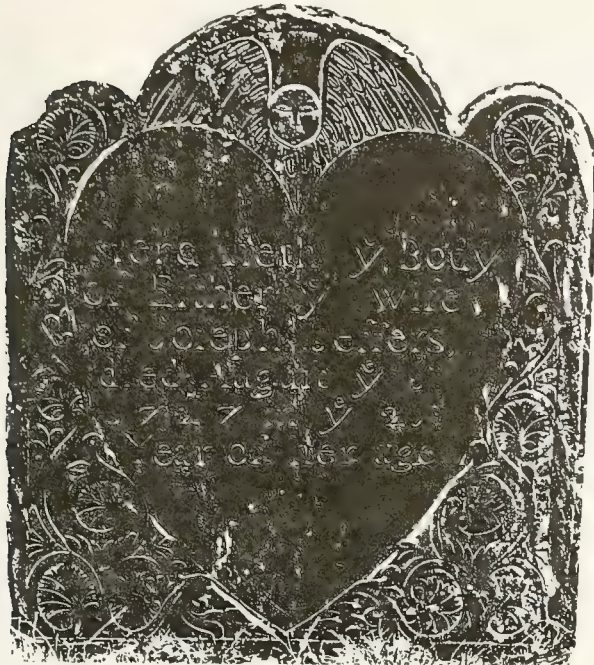 Here lieth yͤ Body
of Esther yͤ wife
of Joseph
died August yͤ
1727 yͤ
year of her age